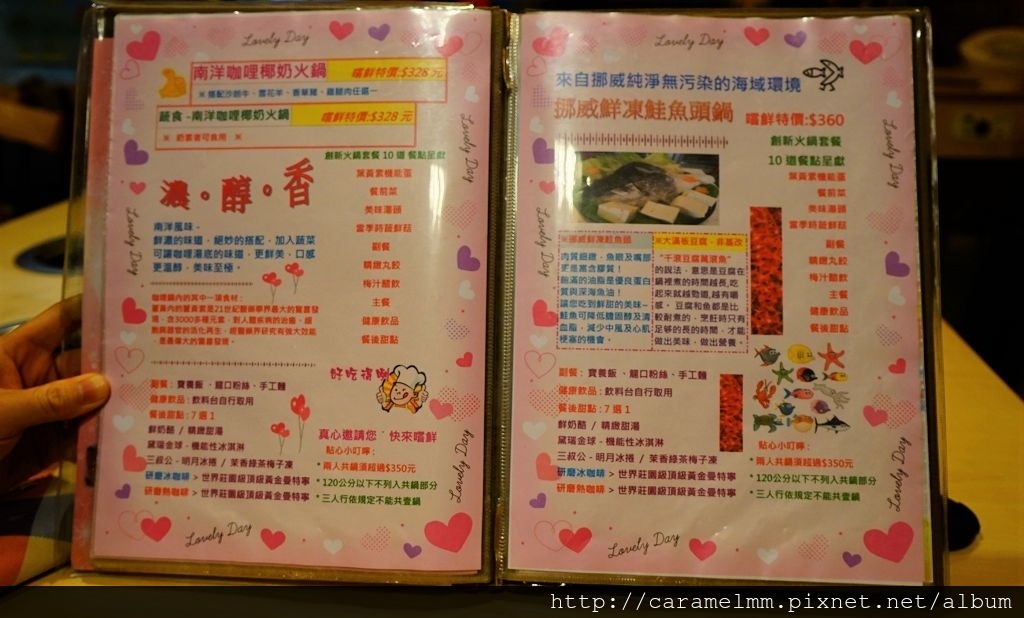 Lovely Day
南洋咖哩椰奶火鍋 嚐鮮特價:$328 元
蔬食-南洋咖哩椰奶火鍋 嚐鮮特價:$328 元
※ 奶素者可食用 ※
創新火鍋套餐 10 道 餐點呈獻
濃。醇。香
葉黃素機能蛋
餐前菜
美味湯頭
當季時蔬鮮菇
副餐
精緻丸餃
梅汁醋飲
主餐
健康飲品
餐後甜點
南洋風味-
鮮濃的味道,絕妙的搭配,加入蔬菜
可讓咖哩湯底的味道,更鮮美、口感
更溫醇、美味至極。
咖哩鍋內的其中一項食材:
好吃得咧
副餐:寶養飯、龍口粉絲、手工麵
健康飲品:飲料台自行取用
餐後甜點:7 選 1
鮮奶酪 / 精緻甜湯
黛瑞金球-機能性冰淇淋
三叔公-明月冰捲 / 茉香綠茶梅子凍
研磨冰咖啡 > 世界莊園級頂級黃金曼特寧
研磨熱咖啡 > 世界莊園級頂級黃金曼特寧
真心邀請您 快來嚐鮮
貼心小叮嚀:
*兩人共鍋須超過$350元
*120公分以下不列入共鍋部分
*三人行依規定不能共壹鍋
Lovely Day
Lovely Day
Lovely Day
Lovely Day
Lovely Day
來自挪威純淨無污染的海域環境
挪威鮮凍鮭魚頭鍋 嚐鮮特價:$360
創新火鍋套餐
10 道 餐點呈獻
葉黃素機能蛋
餐前菜
美味湯頭
當季時蔬鮮菇
副餐
精緻丸餃
梅汁醋飲
主餐
健康飲品
餐後甜點
※挪威鮮凍鮭魚頭
肉質細緻,魚眼及嘴部
更是富含膠質!
飽滿的油脂是優良蛋白
質與深海魚油!
讓您吃到鮮甜的美味~
鮭魚可降低膽固醇及清
血脂,減少中風及心肌
梗塞的機會。
※大漢板豆腐-非基改
"千滾豆腐萬滾魚"
的說法,意思是豆腐在
鍋裡煮的時間越長,吃
起來就越勁道,越有嚼
感。豆腐和魚都是比
較耐煮的,烹飪時只有
足夠的長的時間,才能
做出美味、做出營養。
副餐:寶養飯、龍口粉絲、手工麵
健康飲品:飲料台自行取用
餐後甜點:7 選 1
鮮奶酪 / 精緻甜湯
黛瑞金球-機能性冰淇淋
三叔公-明月冰捲 / 茉香綠茶梅子凍
研磨冰咖啡 > 世界莊園級頂級黃金曼特寧
研磨熱咖啡 > 世界莊園級頂級黃金曼特寧
貼心小叮嚀:
*兩人共鍋須超過$350元
*120公分以下不列入共鍋部分
*三人行依規定不能共壹鍋
Lovely Day
Lovely Day
Lovely Day
Lovely Day
http://caramelmm.pixnet.net/album